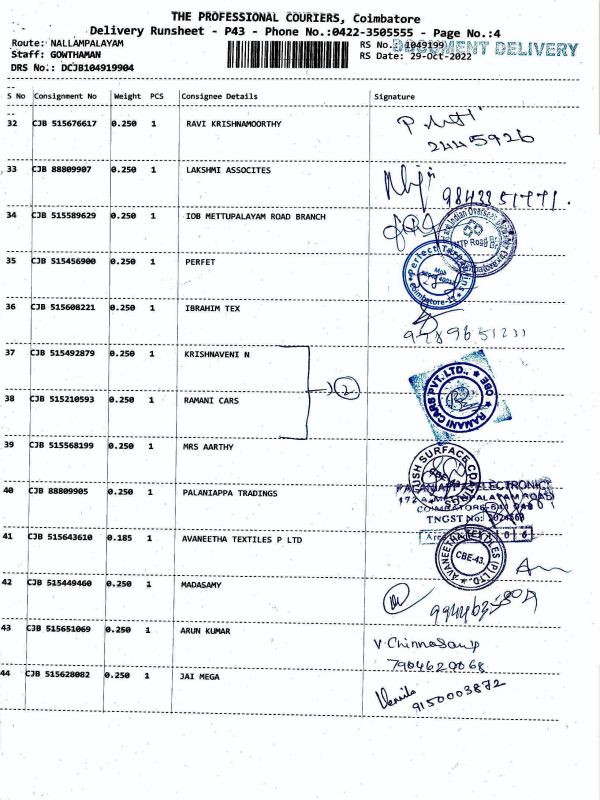 THE PROFESSIONAL COURIERS, Coimbatore
Delivery Runsheet - P43 - Phone No.:0422-3505555 - Page No.:4
Route: NALLAMPALAYAM
RS No.: 1049199
DOCUMENT DELIVERY
Staff: GOWTHAMAN
RS Date: 29-Oct-2022
DRS No.: DCJB104919904
S No Consignment No Weight PCS Consignee Details Signature
32 CJB 515676617 0.250 1 RAVI KRISHNAMOORTHY
2445926
33 CJB 88809907 0.250 1 LAKSHMI ASSOCITES
34 CJB 515589629 0.250 1 IOB METTUPALAYAM ROAD BRANCH
Indian Overseas
MTP Road
Coimbatore
35 CJB 515456900 0.250 1 PERFET
Coimbatore
36 CJB 515608221 0.250 1 IBRAHIM TEX
37 CJB 515492879 0.250 1 KRISHNAVENI N
2
38 CJB 515210593 0.250 1 RAMANI CARS
RAMANI CARS PVT. LTD., CBE
39 CJB 515568199 0.250 1 MRS AARTHY
SURFACE
CBE-43
40 CJB 88809905 0.250 1 PALANIAPPA TRADINGS
PALANIAPPA ELECTRONICS
COIMBATORE-641 043
TNGST No:
41 CJB 515643610 0.185 1 AVANEETHA TEXTILES P LTD
AVANEETHA TEXTILES (P) LTD.,
CBE-43.
42 CJB 515449460 0.250 1 MADASAMY
43 CJB 515651069 0.250 1 ARUN KUMAR
V. Chinnasamy
7904620068
44 CJB 515628082 0.250 1 JAI MEGA
9150003872